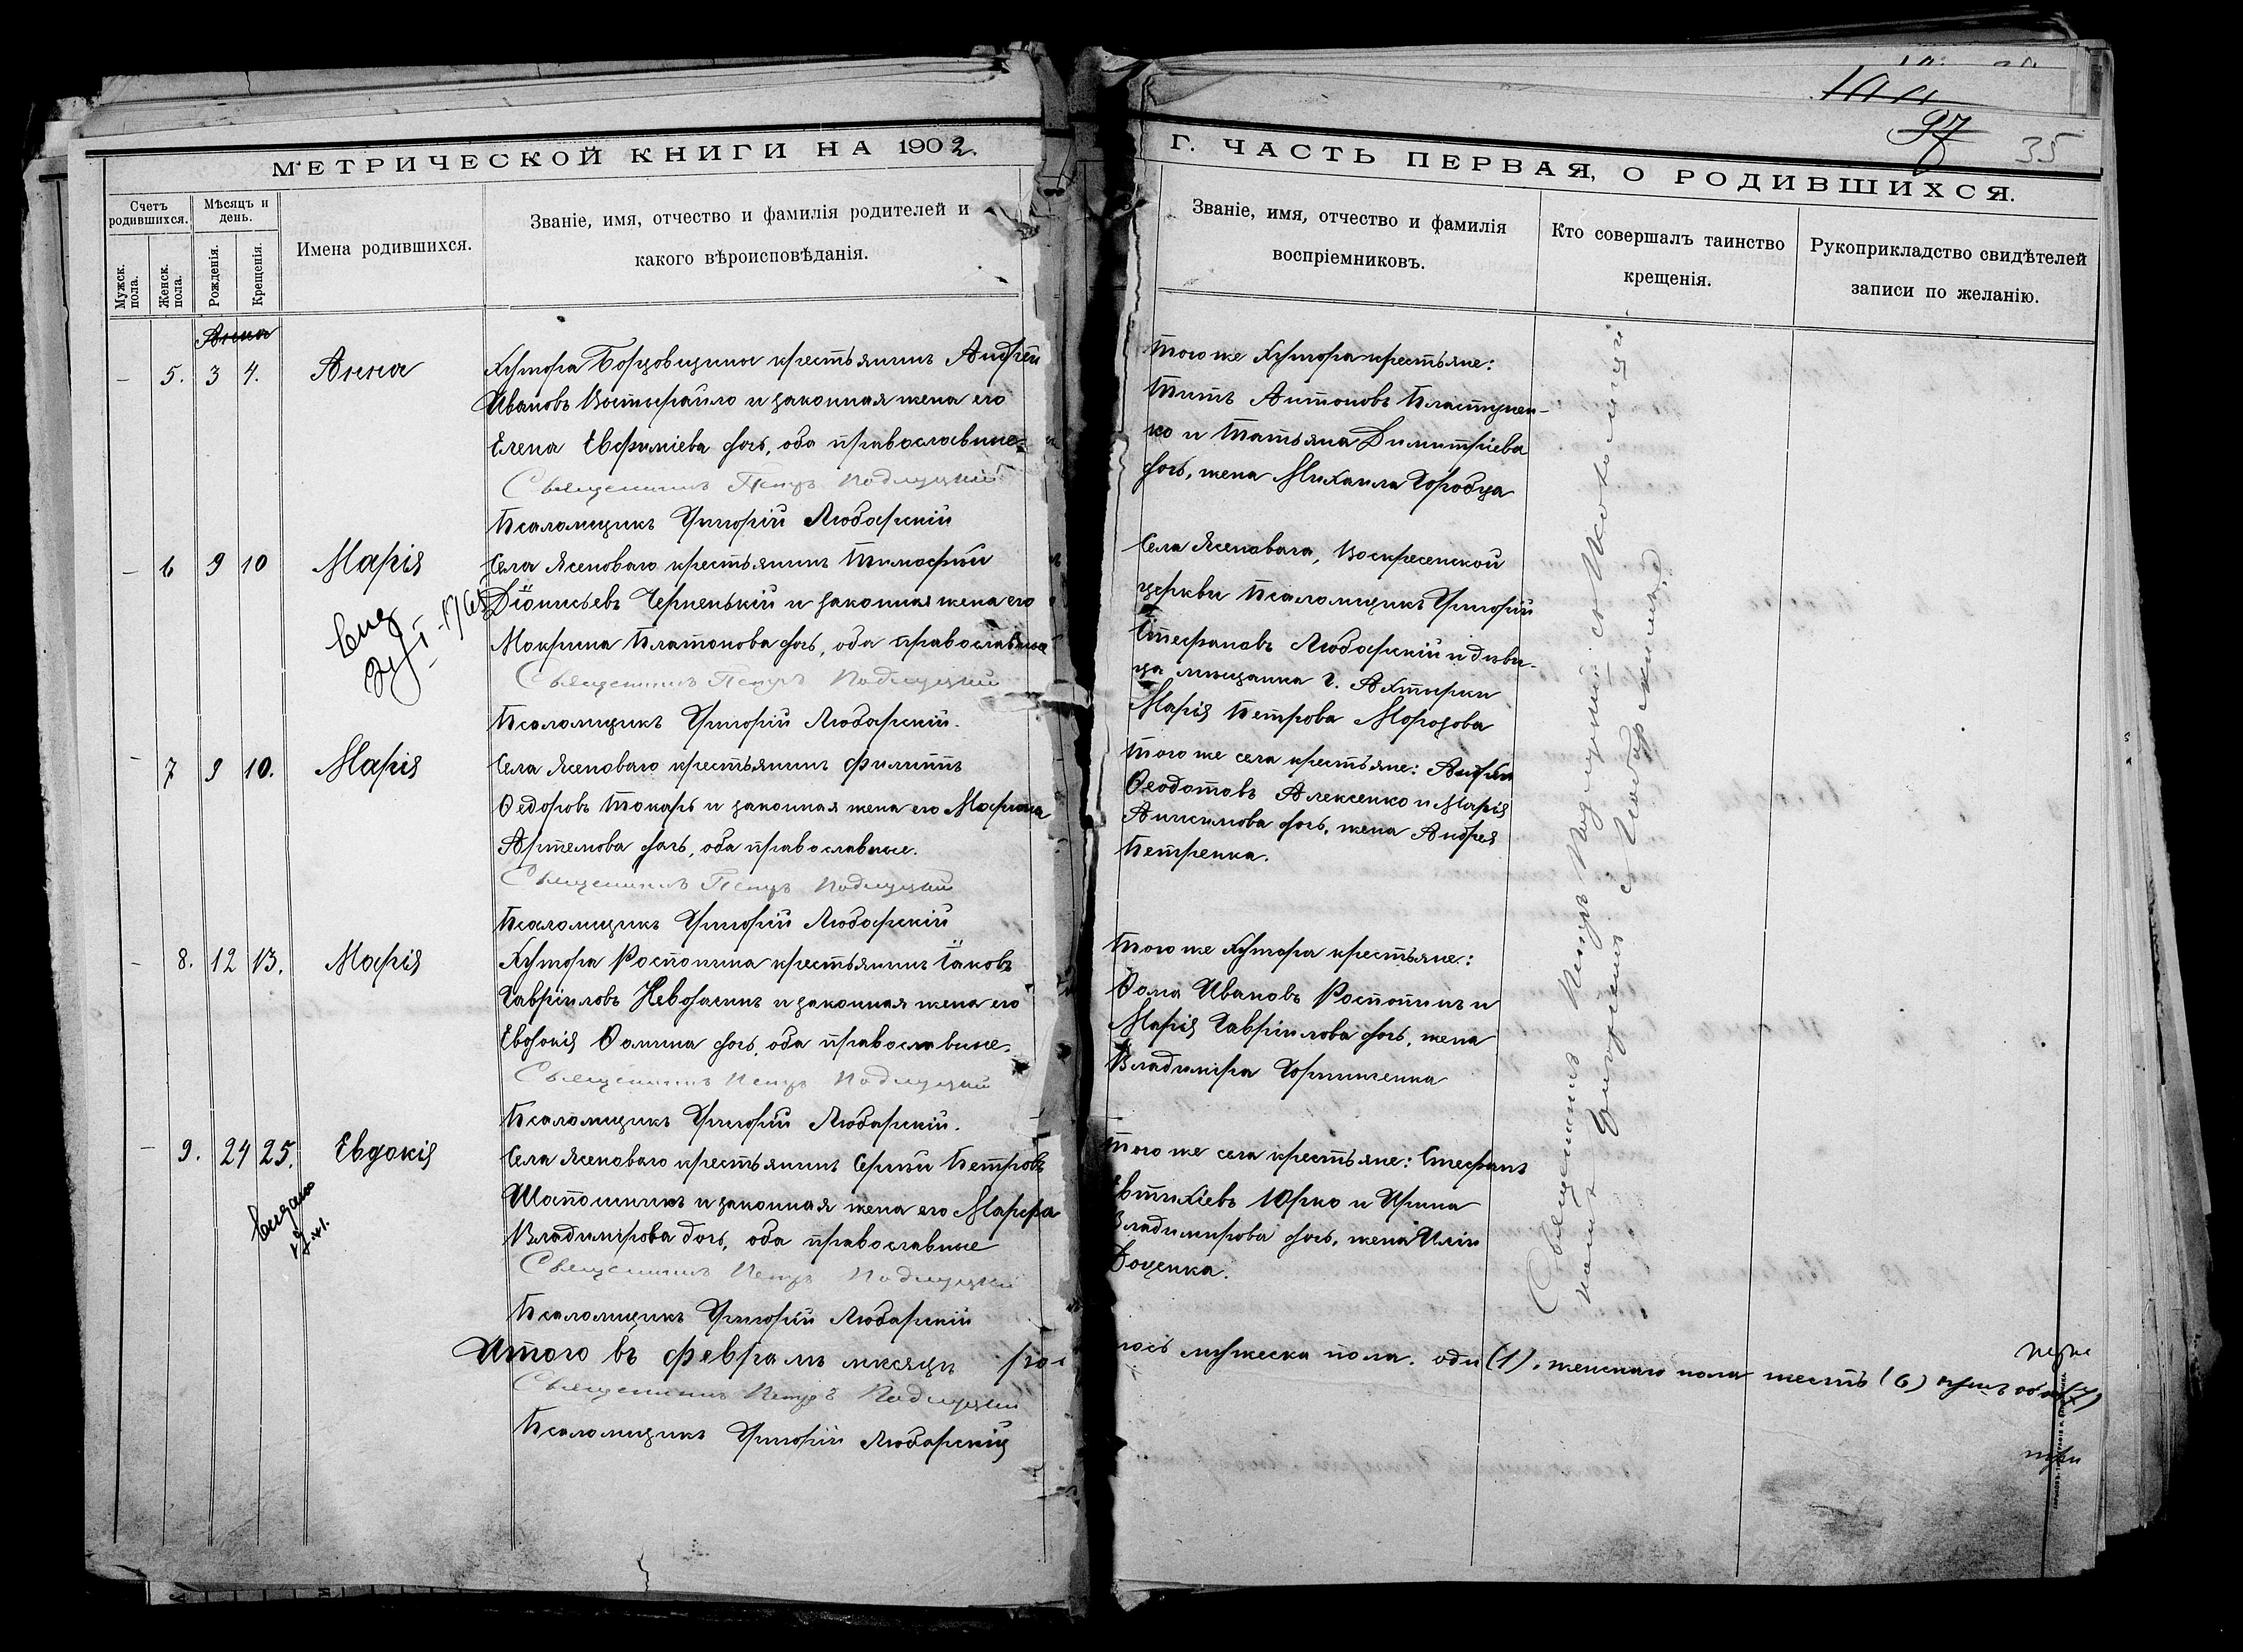 МЕТРИЧЕСКОЙ КНИГИ НА 1902.
Счетъ родившихся.
Мужск. пола.
Женск. пола.
Мѣсяцъ и день.
Рожденія.
Крещенія.
Имена родившихся.
Званіе, имя, отчество и фамилія родителей и
какого вѣроисповѣданія.
Анна
5. 3 4. Анна
Хутора Борзовщина крестьянинъ Андрей
Ивановъ и законная жена его
Елена Евфиміева дочь, оба православные
Священникъ Петръ Подлуцкій
Псаломщикъ Григорій Любарскій
6 9 10 Марія
Села Ясеноваго крестьянинъ Тимофей
Діонисьевъ Черненькій и законная жена его
Мокрина Платонова дочь, оба православные
Священникъ Петръ Подлуцкій
Псаломщикъ Григорій Любарскій.
7 9 10. Марія
Села Ясеноваго крестьянинъ Филиппъ
Ѳедоровъ Токарь и законная жена его
Артемова дочь, оба православные.
Священникъ Петръ Подлуцкій
Псаломщикъ Григорій Любарскій
8. 12 13. Марія
Хутора Распопина крестьянинъ Іаковъ
Гавріиловъ и законная жена его
Евдокія Ѳомина дочь, оба православные.
Священникъ Петръ Подлуцкій
Псаломщикъ Григорій Любарскій.
9. 24 25. Евдокія
Села Ясеноваго крестьянинъ Сергѣй Петровъ
и законная жена его Марфа
Владимірова дочь, оба православные
Священникъ Петръ Подлуцкій
Псаломщикъ Григорій Любарскій
Итого въ февралѣ мѣсяцѣ ро-
Священникъ Петръ Подлуцкій
Псаломщикъ Григорій Любарскій
97
35
Г. ЧАСТЬ ПЕРВАЯ, О РОДИВШИХСЯ.
Званіе, имя, отчество и фамилія
воспріемниковъ.
Кто совершалъ таинство
крещенія.
Рукоприкладство свидѣтелей
записи по желанію.
Того же хутора крестьяне:
Титъ Антоновъ Пластунен-
ко и Татьяна Димитріева
дочь, жена Михаила Горобца
Села Ясеноваго, Воскресенской
церкви Псаломщикъ Григорій
Стефановъ Любарскій и дѣви-
ца мѣщанка г. Ахтырки
Марія Петрова Морозова
Того же села крестьяне: Андрей
Ѳеодотовъ Алексенко и Марія
Анисимова дочь, жена Андрея
Петренка.
Того же хутора крестьяне:
Ѳома Ивановъ Распопинъ и
Марія Гавріилова дочь, жена
Владиміра
Того же села крестьяне: Стефанъ
Евтихіевъ Юрко и Ирина
Владимирова дочь, жена Иліи
Доценка.
Священникъ Петръ Подлуцкій съ Псаломщи-
комъ Григоріемъ Любарскимъ.
лось мужеска пола. оди(1), женскаго пола шесть (6)